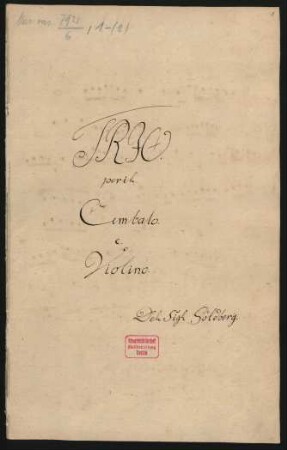 Mus. ms. 7921/6, 1-(2)
TRIO.
per il
Cimbalo
e
Violino
Del Sigr. Goldberg.